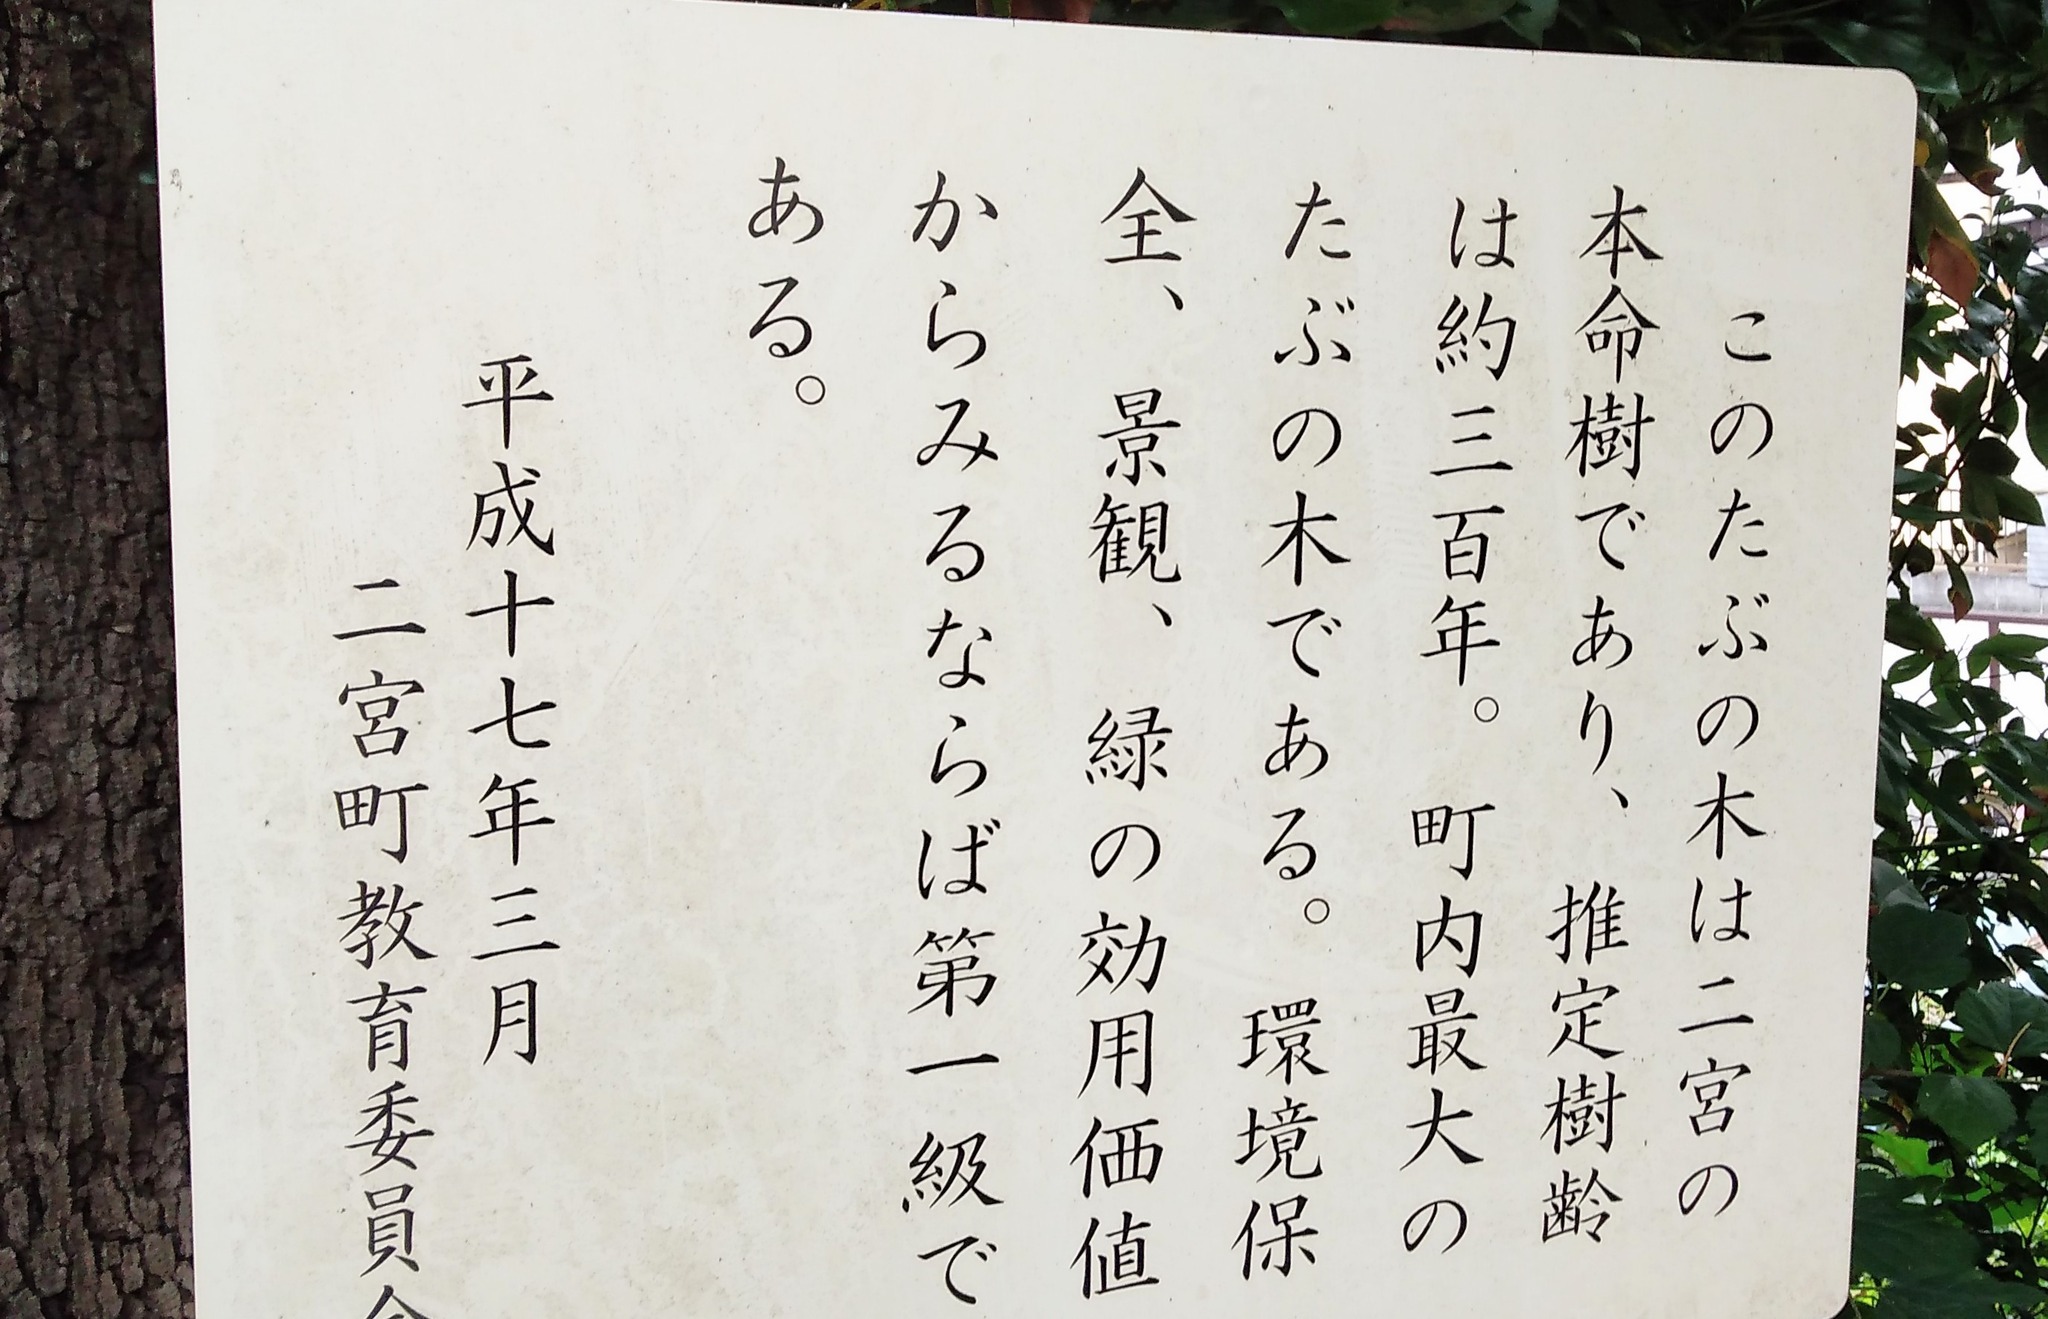 このたぶの木は二宮の
本命樹であり、推定樹齢
は約三百年。町内最大の
たぶの木である。環境保
全、景観、緑の効用価値
からみるならば第一級で
ある。
平成十七年三月
二宮町教育委員会